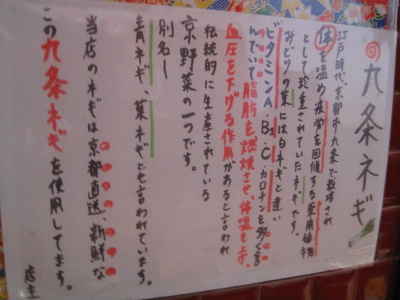 九条ネギ
江戸時代、京都市九条で栽培され
体を温め疲労を回復する薬用植物
として珍重されていたネギです。
みどりの葉には白ネギと違い
ビタミンA B2 C・カロチンを多く含
んでいて脂肪を燃焼させ、体温を上げ、
血圧を下げる作用があると言われ
伝統的に生産されている
京野菜の一つです。
別名ー
青ネギ、葉ネギとも言われています。
当店のネギは京都直送、新鮮な
この九条ネギを使用してます。
店主